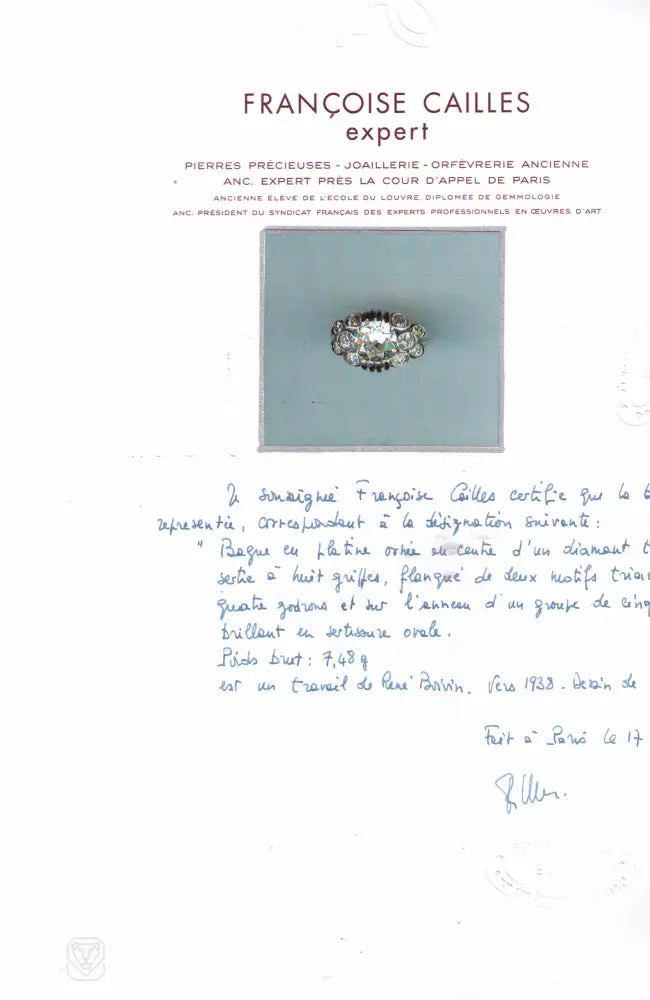 FRANÇOISE CAILLES
expert
PIERRES PRÉCIEUSES - JOAILLERIE - ORFÈVRERIE ANCIENNE
ANC. EXPERT PRÈS LA COUR D'APPEL DE PARIS
ANCIENNE ÉLÈVE DE L'ÉCOLE DU LOUVRE. DIPLOMÉE DE GEMMOLOGIE
ANC. PRÉSIDENT DU SYNDICAT FRANÇAIS DES EXPERTS PROFESSIONNELS EN ŒUVRES D'ART
Je soussignée Françoise Cailles certifie que la b
représentée, correspondant à la désignation suivante :
" Bague en platine ornée au centre d'un diamant t
sertie à huit griffes, flanqué de deux motifs trian
quatre godrons et sur l'anneau d'un groupe de cinq
brillant en sertissure ovale.
Poids brut : 7,48 g
est un travail de René Boivin. Vers 1938. Dessin de
Fait à Paris le 17